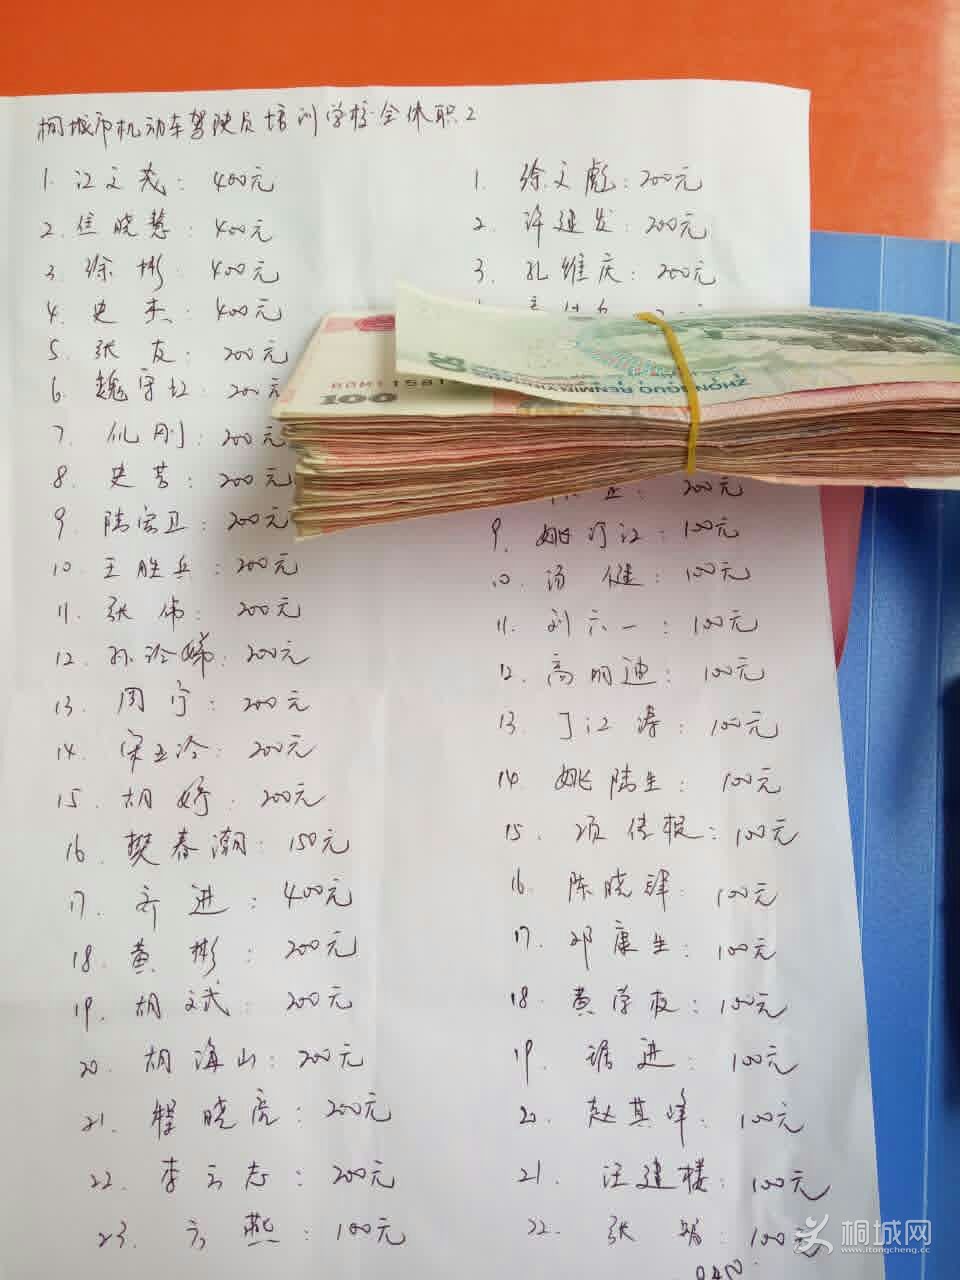 桐城市机动车驾驶员培训学校全体职工
1. 江文茂: 400元
2. 焦晓慧: 400元
3. 徐彬: 400元
4. 史杰: 400元
5. 张友: 200元
6. 魏守红: 200元
7. 仇刚: 200元
8. 史芸: 200元
9. 陆宏卫: 200元
10. 王胜兵: 200元
11. 张伟: 200元
12. 孙 200元
13. 周宁: 200元
14. 宋 200元
15. 胡婷: 200元
16. 樊春潮: 150元
17. 齐进: 400元
18. 黄彬: 200元
19. 胡斌: 200元
20. 胡海山: 200元
21. 程晓亮: 200元
22. 李云志: 200元
23. 方燕: 100元
1. 徐文彪: 200元
2. 许建发: 200元
3. 孔维庆: 200元
200元
9. 姚 江: 100元
10. 汤健: 100元
11. 刘六一: 100元
12. 高明迪: 100元
13. 丁江涛: 100元
14. 姚陆生: 100元
15. 项传根: 100元
16. 陈晓 100元
17. 邓康生: 100元
18. 黄学友: 100元
19. 进: 100元
20. 赵其峰: 100元
21. 汪建楼: 100元
22. 张 100元
100
ZHONGGUO RENMIN YINHANG
桐城网
www.itongcheng.cc